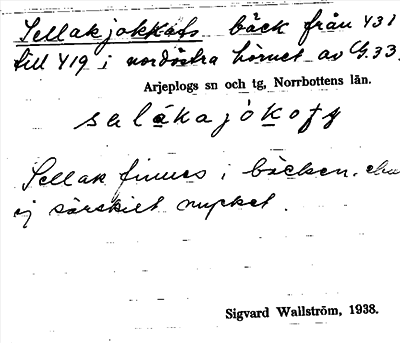 Sellakjokkats bäck från 431
till 419 i nordöstra hörnet av G.33.
Arjeplogs sn och tg, Norrbottens län.
Sellak finnes i bäcken,
ej särskilt mycket.
Sigvard Wallström, 1938.